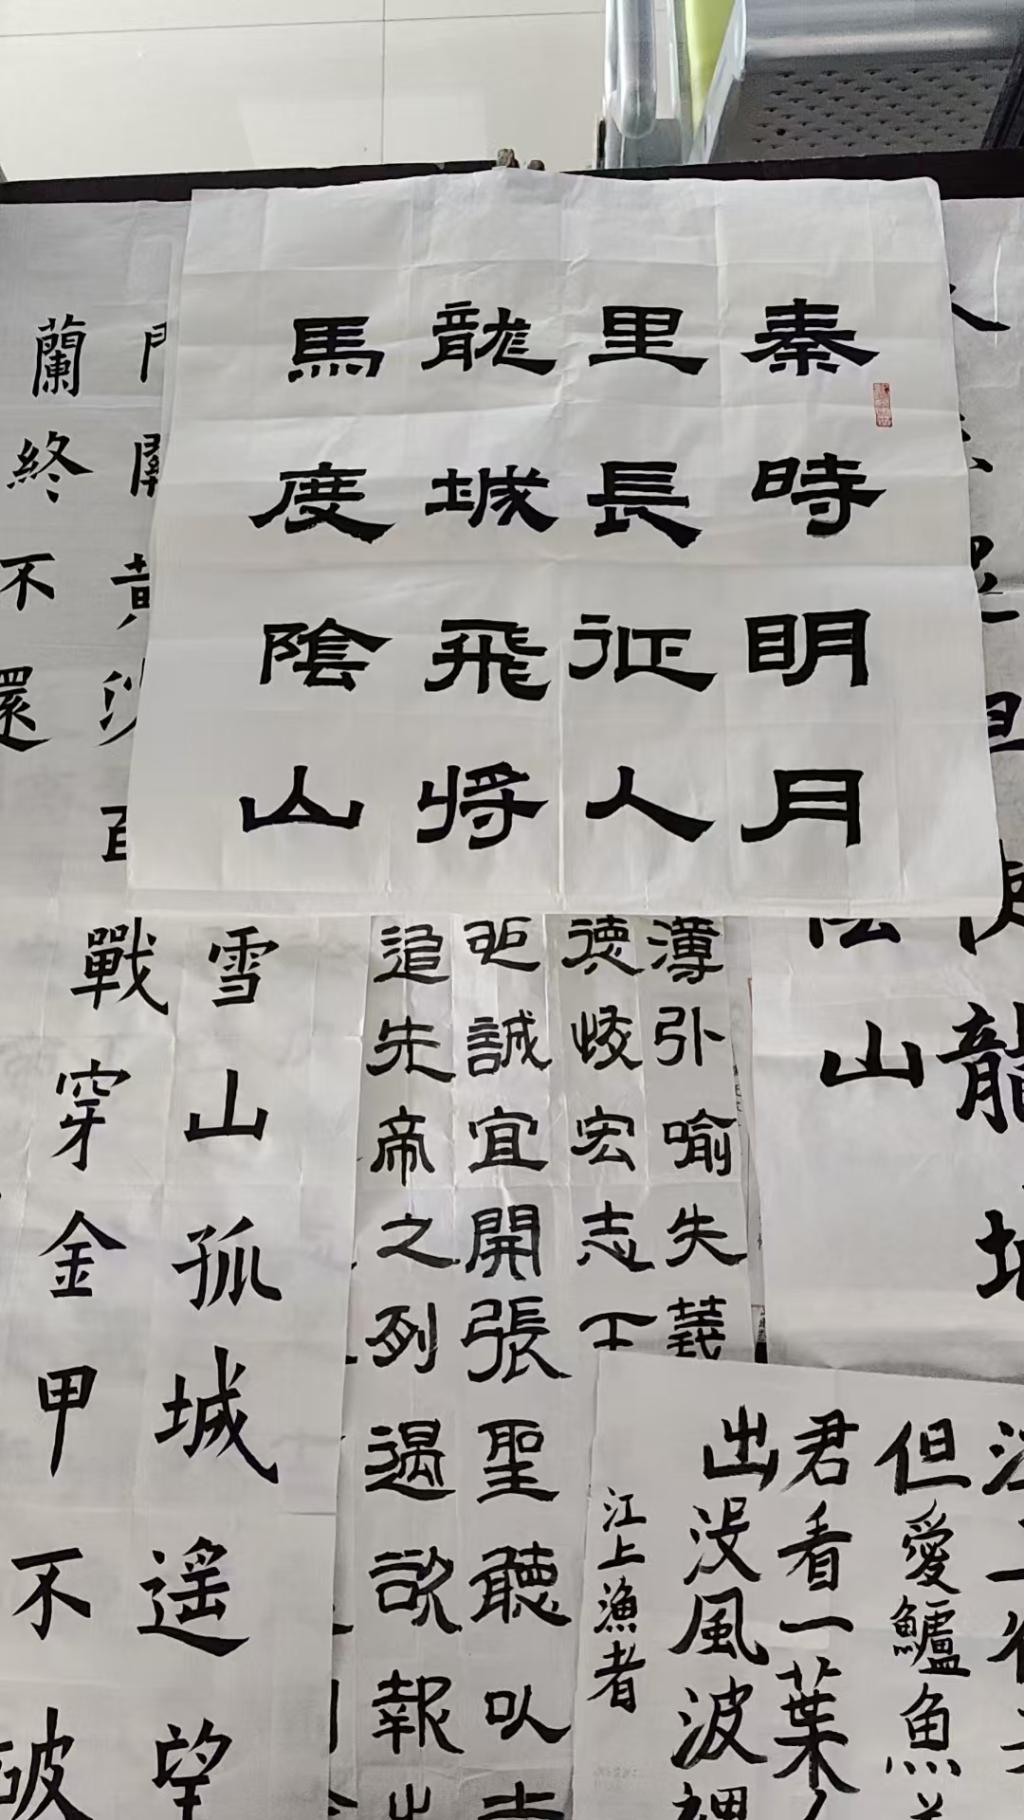 秦時明月
里長征人
龍城飛将
馬度陰山
雪山孤城遥望
沙百戰穿金甲不破
蘭終不還
但使龍城
陰山
薄引喻失義
德恢宏志士
也誠宜開張聖聽以
追先帝之列遇欲報
江上往
但愛鱸魚美
君看一葉
出没風波裡
江上漁者